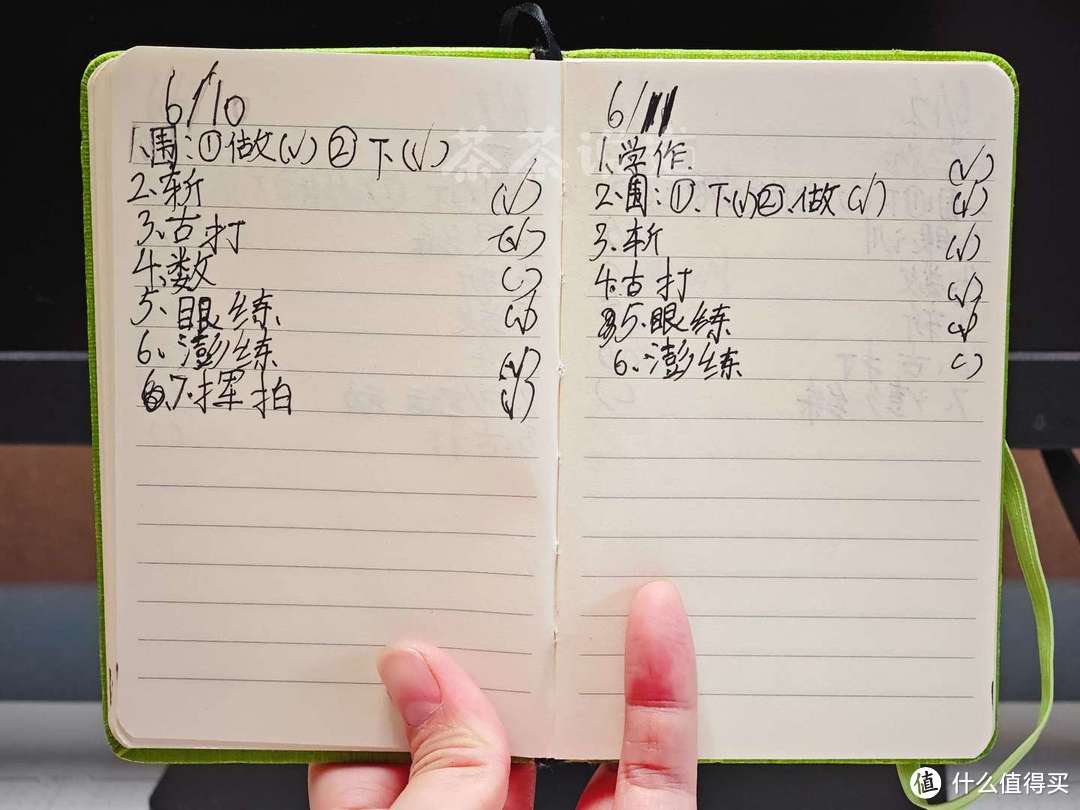 6/10
1.围:①做(√)②下(√)
2.斩 (√)
3.古打 (√)
4.数 ( )
5.眼练 (√)
6.澎练 (√)
7.挥拍 (√)
6/11
1.学作 (√)
2.围:①.下(√)②.做(√) (√)
3.斩 (√)
4.古打 (√)
5.眼练 (√)
6.澎练 ( )
值 什么值得买